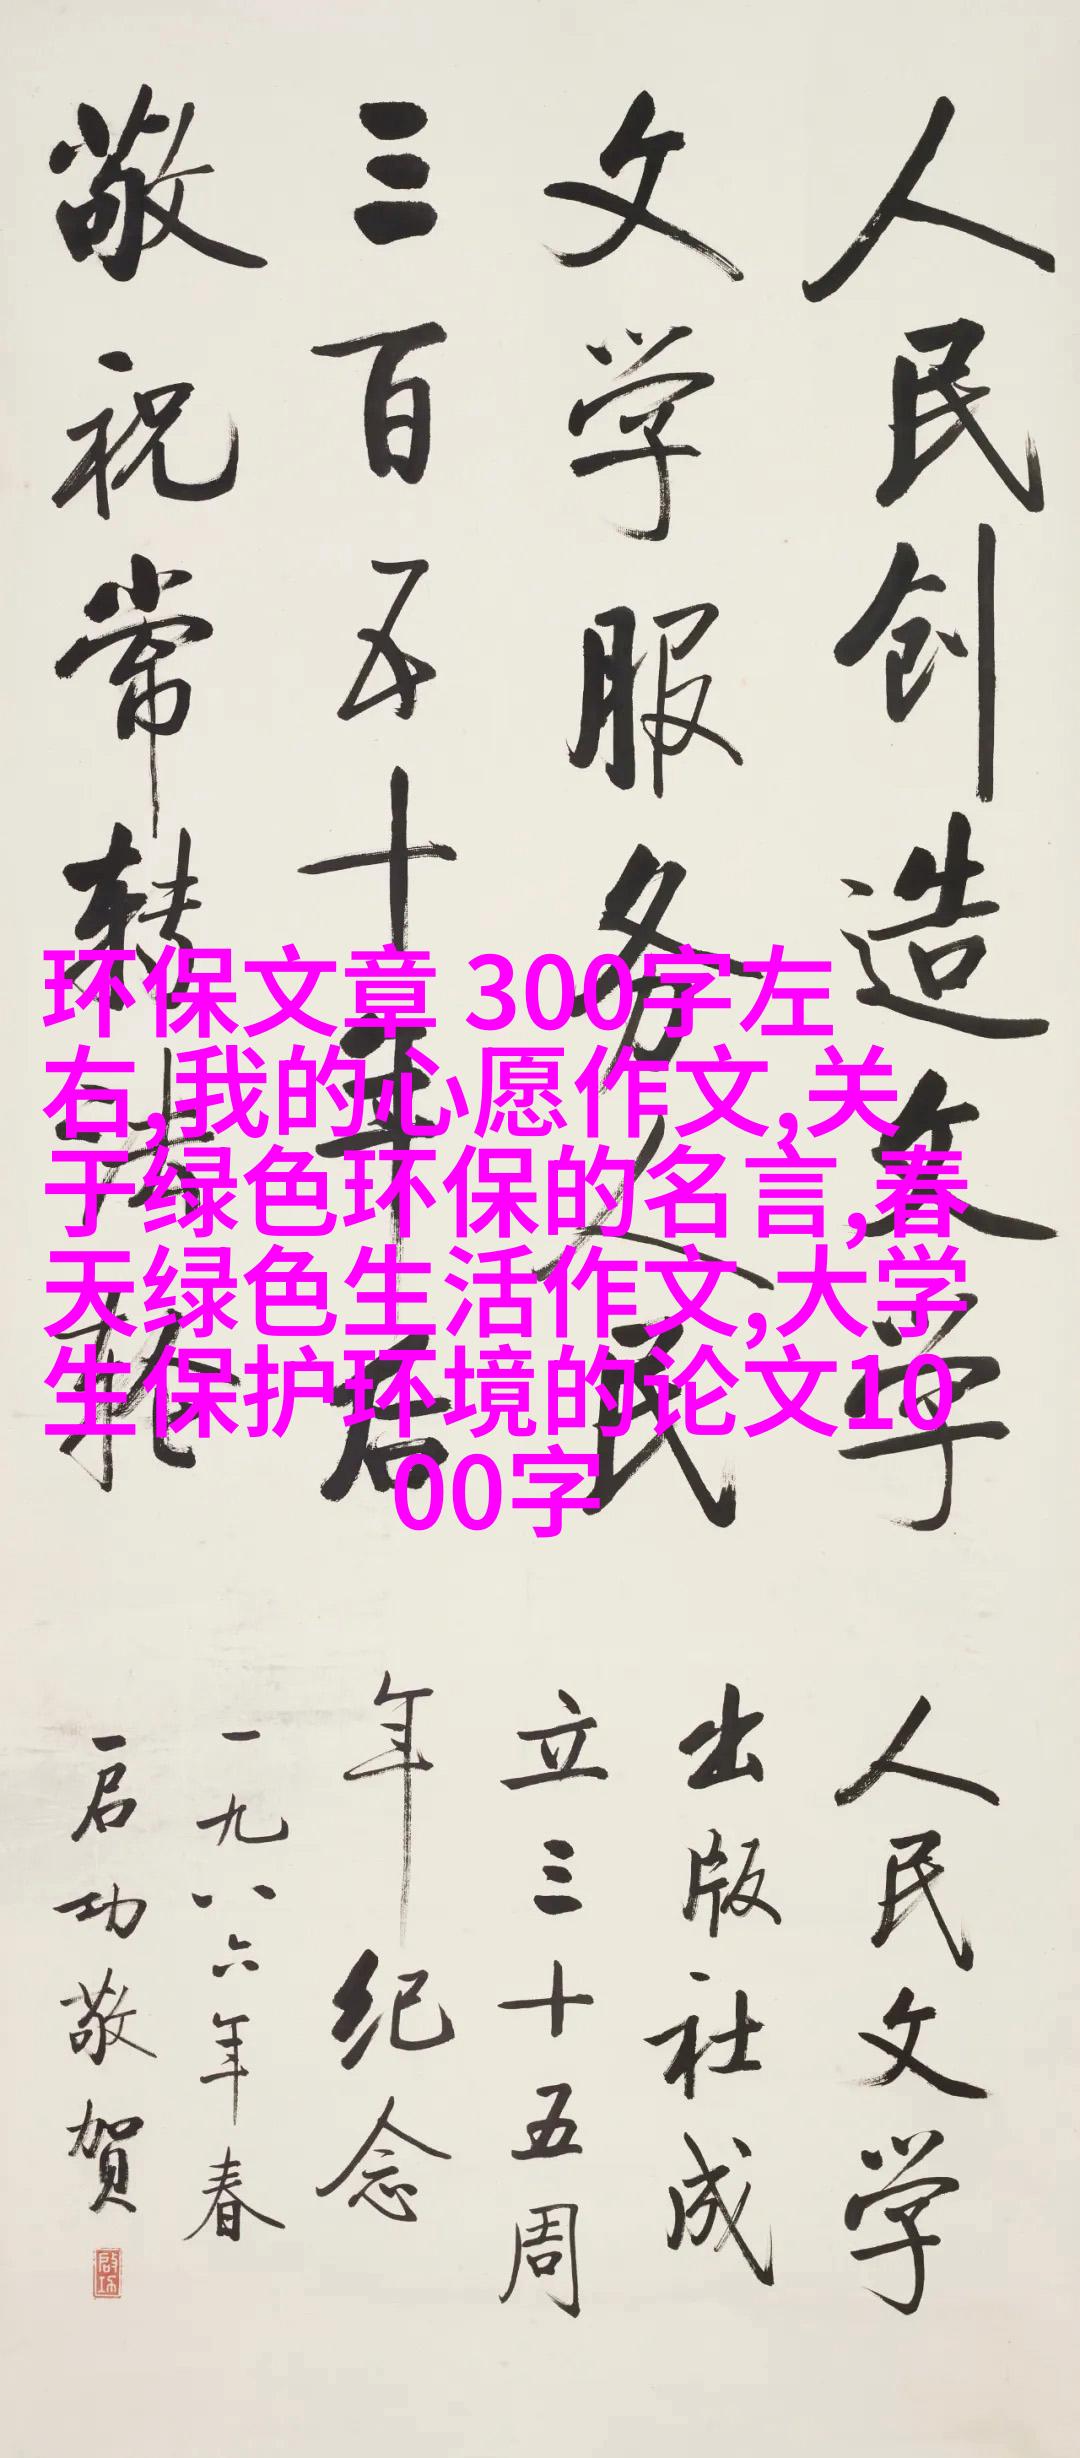 人民创造文学
文学服务人民
三百五十年后
敬祝常转法轮
人民文学
出版社成
立三十五周
年纪念
一九八六年春
启功敬贺
环保文章 300字左
右,我的心愿作文,关
于绿色环保的名言,春
天绿色生活作文,大学
生保护环境的论文10
00字